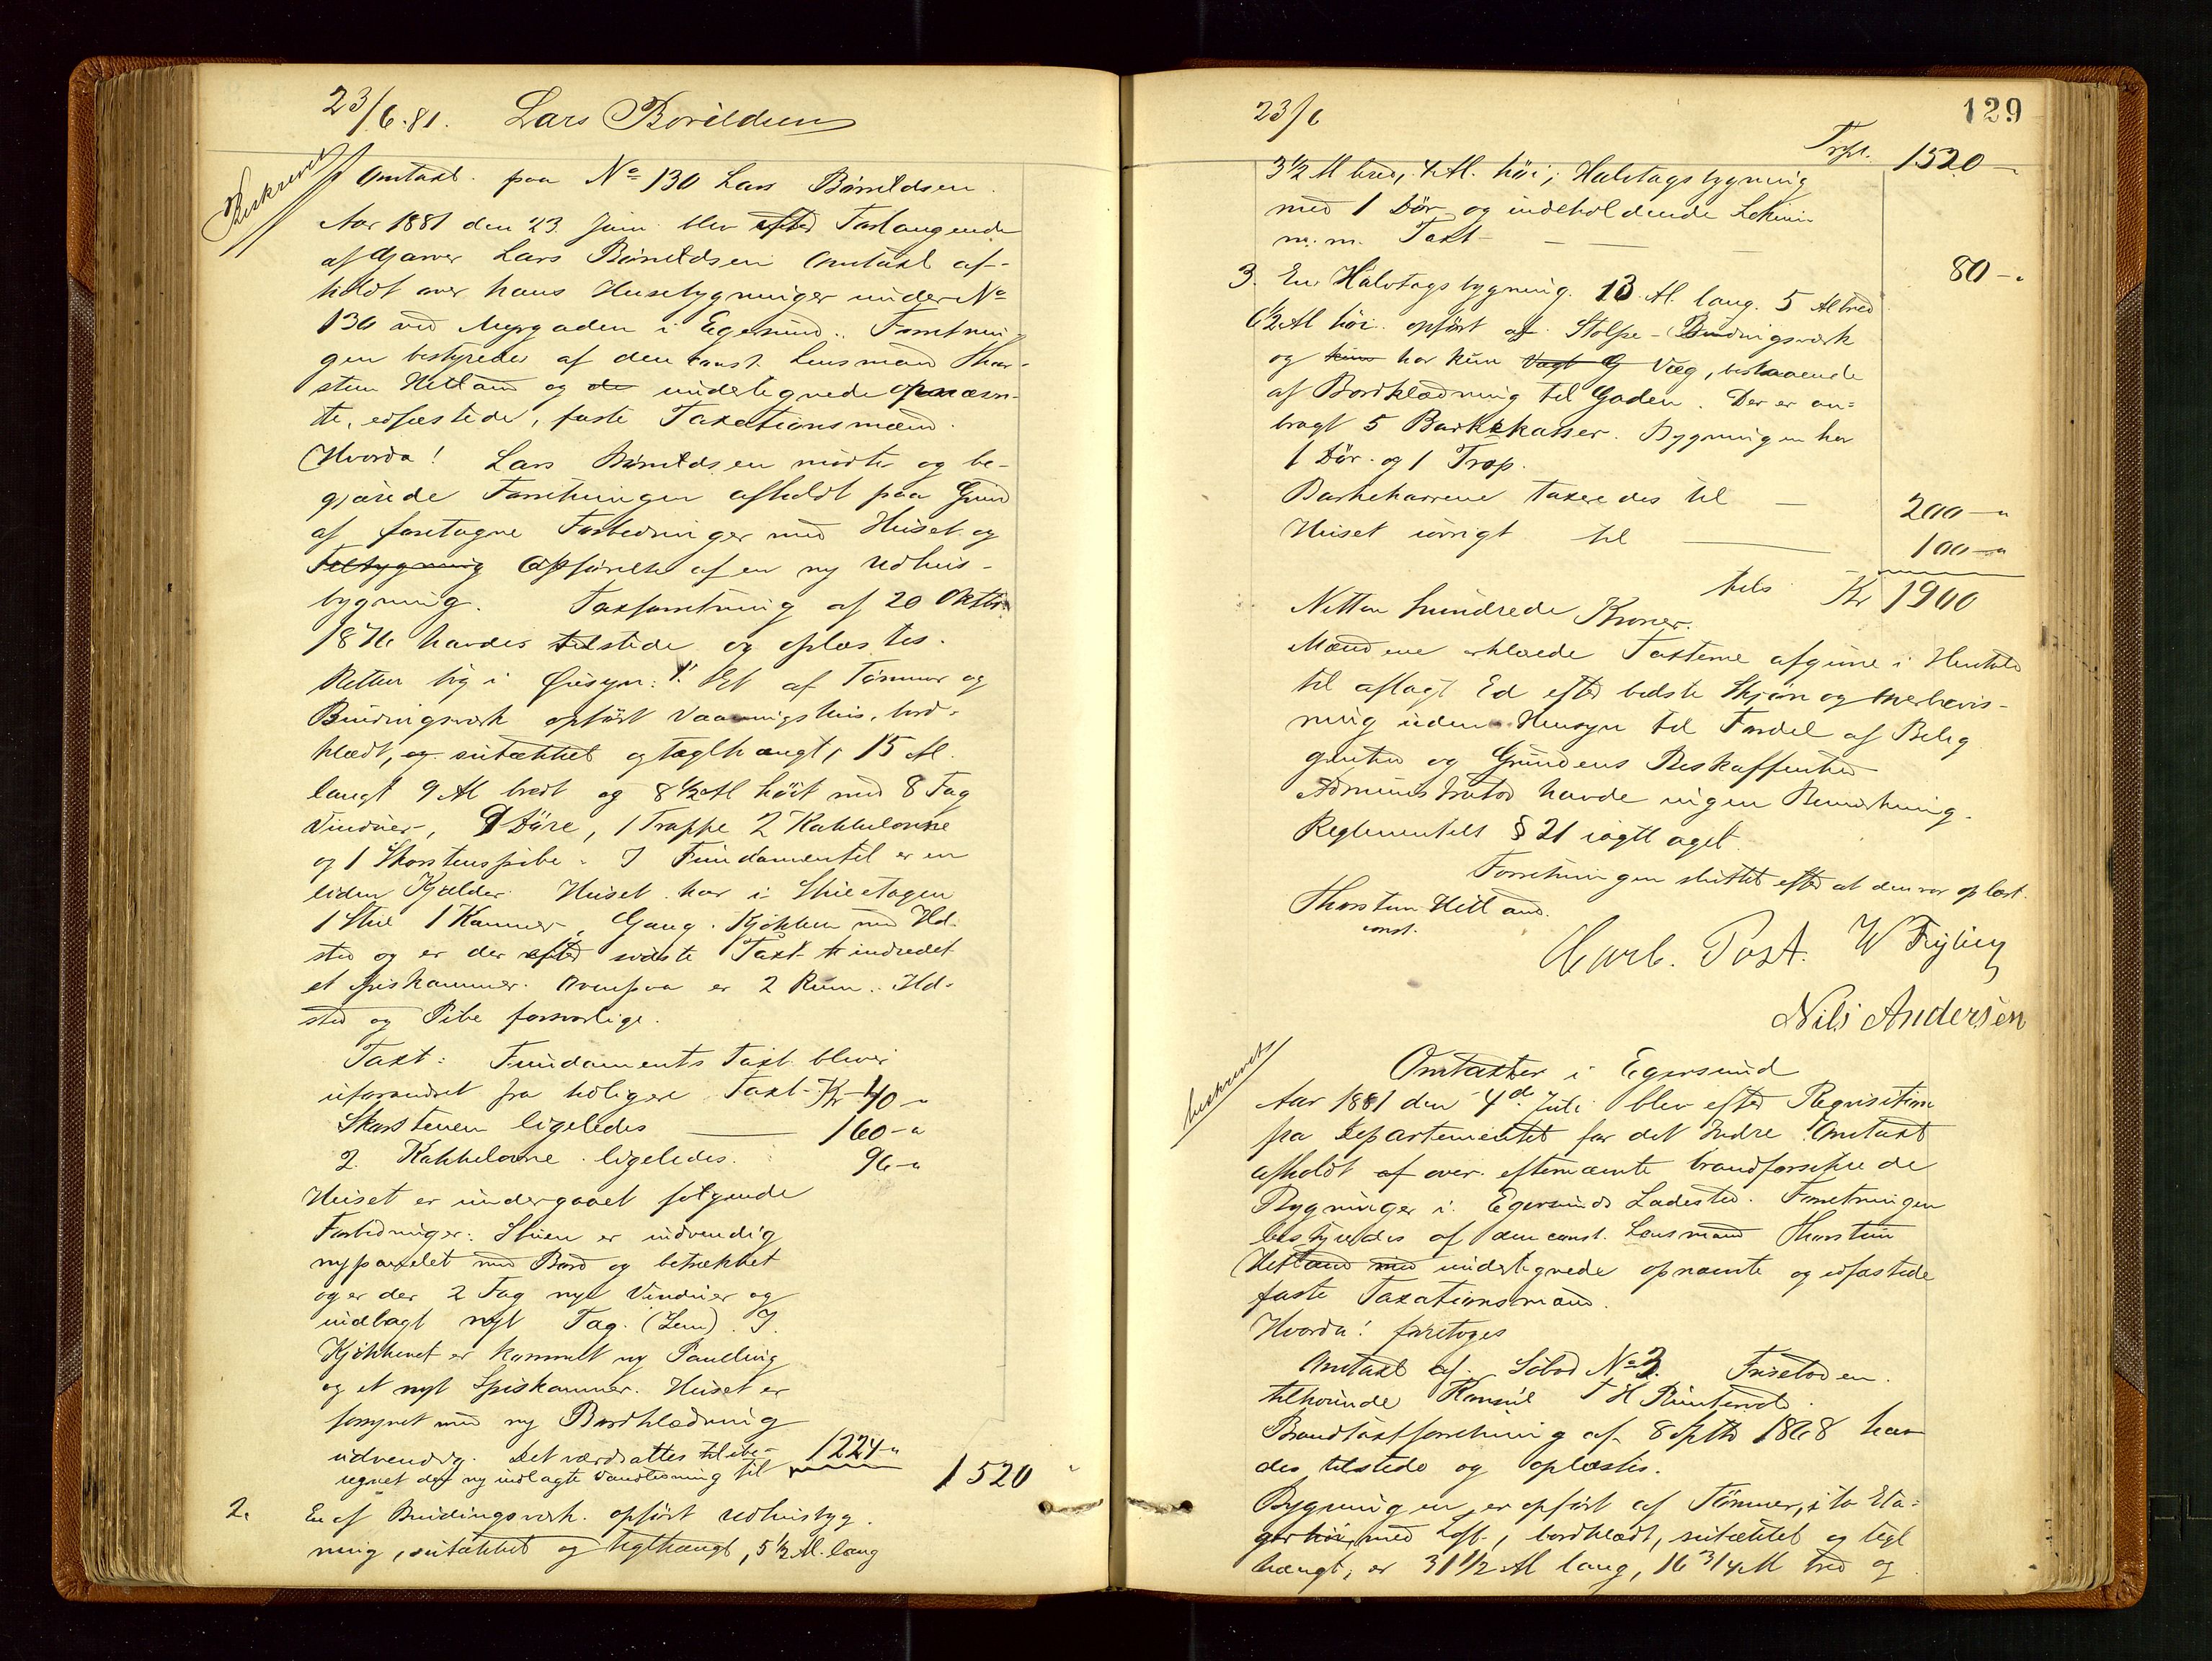 23/6.81. Lars Borildsen
Beskrevet
Omtaxt. paa No 130 Lars Börildsen.
Aar 1881 den 23. Juni blev efter Forlangende
af Garver Lars Börildsen Omtaxt af-
holdt over hans Husebygninger under No
130 ved Myrgaden i Egersund. Forretnin-
gen bestyredes af den const. Lensmand Thor-
sten Hetland og de undertegnede opnævn-
te, edfæstede, faste Taxationsmænd.
Hvorda! Lars Börildsen mödte og be-
gjærede Forretningen afholdt paa Grund
af foretagne Forbedringer med Huset og
Tilbygning Opförelse af en ny Udhus-
bygning. Taxforretning af 20 Oktbr.
1876 havdes tilstede og oplæstes.
Retten tog i Öiesyn: 1. Et af Tömmer og
Bindingsværk opfört Vaaningshus, bord-
klædt, og sutækket og teglhængt, 15 Al.
langt 9 Al bredt og 8 1/2 Al höit med 8 Fag
Vinduer, 9 Döre, 1 Trappe 2 Kakkelovne
og 1 Skorstenspibe. I Fundamentet er en
liden Kjælder. Huset har i Stueetagen
1 Stue 1 Kammer, Gang. Kjökken med Ild-
sted og er der efter sidste Taxt indredet
et Spiskammer. Ovenpaa er 2 Rum. Ild-
sted og Pibe forsvarlige.
Taxt: Fundamentets Taxt bliver
uforandret fra tidligere Taxt - Kr 40 -"
Skorstenen ligeledes — 160 -"
2 Kakkelovne ligeledes. 96 -"
Huset er undergaaet følgende
Forbedringer: Stuen er indvendig
nypanelet med Bord og betrækket
og er der 2 Fag nye Vinduer og
indlagt nyt Tag. (Lem). I
Kjökkenet er kommet ny Panelling
og et nyt Spiskammer. Huset er
forsynet med ny Bordklædning
udvendig. Det værdsattes til ibe- 1224 -"
regnet den ny indlagte Vandledning til 1520
2. En af Bindingsværk. opfört Udhusbyg.
ning, sutækket og teglhængt, 5 1/2 Al. lang
23/6
129
Trspt. 1520 -
3 1/2 Al bred, 4 Al. höi; Halvtagsbygning
med 1 Dör og indeholdende
m.m. Taxt — — 80 -"
3. En Halvtagsbygning. 13 Al. lang. 5 Al bred
6 1/2 Al höi. opfört af Stolpe-Bindingsværk
og kun har kun Væg, bestaaende
af Bordklædning til Gaden. Der er an-
bragt 5 Barkekasser. Bygningen har
1 Dör og 1 Trap.
Barkekarrene taxeredes til — 200 -"
Huset iövrigt til — 100 -"
tils Kr 1900
Nitten hundrede Kroner.
Mændene erklærede Taxterne afgivne i Henhold
til aflagt Ed efter bedste Skjön og Overbevis-
ning uden Hensyn til Fordel af Belig
genhed og Grundens Beskaffenhed
Administrator havde ingen Bemærkning.
Reglementets § 21 iagttaget.
Forretningen sluttet efter at den var oplæst.
Thorsten Hetland.
const.
Carl. Post. W Feyling
Nils Andersen
beskrevet
Omtaxter i Egersund
Aar 1881 den 4de Juli blev efter Reqvisition
fra Departementet for det Indre Omtaxt
afholdt af over efternævnte brandforsikrede
Bygninger i Egersunds Ladested. Forretningen
bestyredes af den const. Lensmand Thorstein
Hetland med undertegnede opnævnte og edfæstede
faste Taxationsmænd.
Hvorda! foretoges
Omtaxt af. Söbod No 3. Friseboden.
tilhörende Konsul T H Puntervold.
Brandtaxtforretning af 8 Septbr 1868 hav
des tilstede og oplæstes.
Bygningen er opfört af Tömmer, i to Eta-
ger höi, med Loft, bordklædt, sutækket og tegl
hængt, er 31 1/2 Al lang, 16 3/4 Al bred og